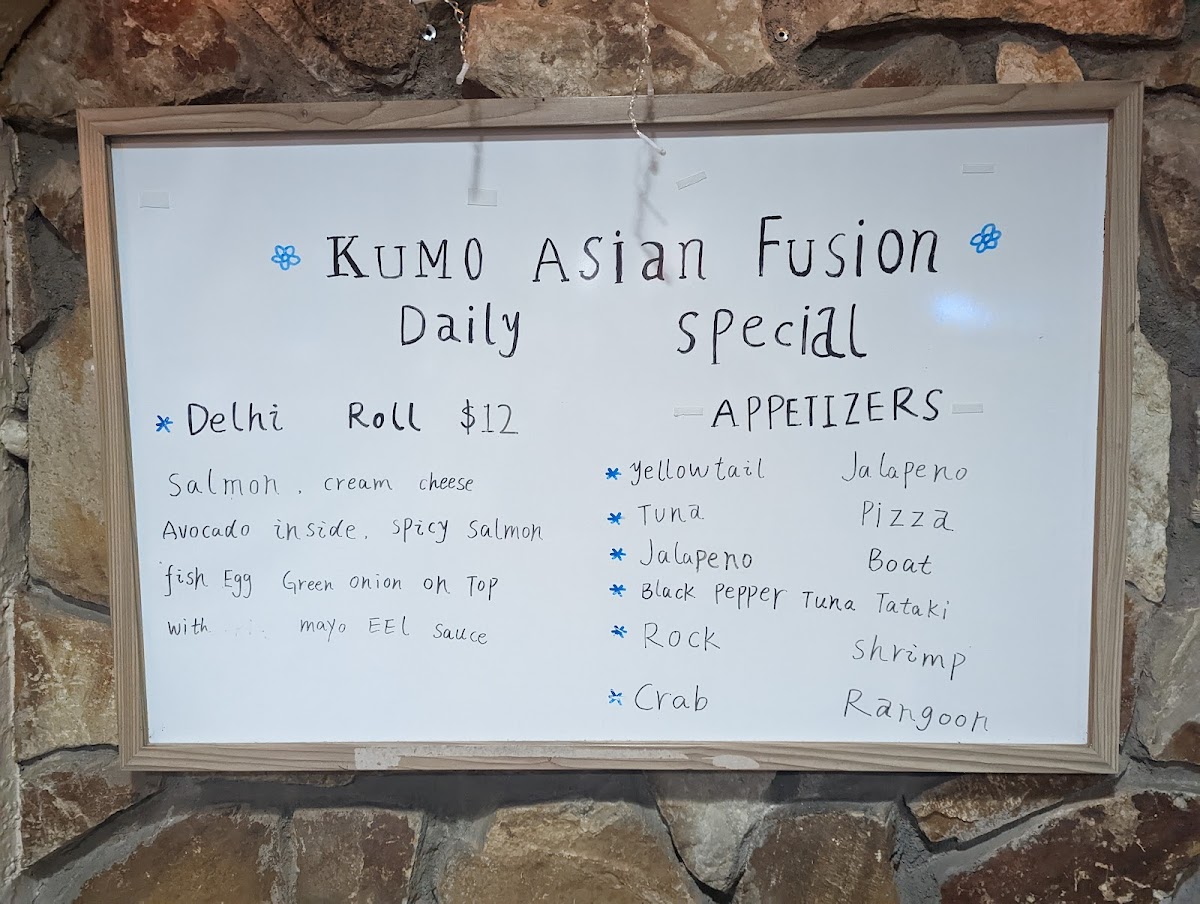 KUMO ASian Fusion
Daily special
Delhi Roll $12
Salmon, cream cheese
Avocado inside, spicy salmon
fish Egg Green onion on Top
with mayo EEL sauce
APPETIZERS
yellowtail Jalapeno
Tuna Pizza
Jalapeno Boat
Black Pepper Tuna Tataki
Rock shrimp
Crab Rangoon